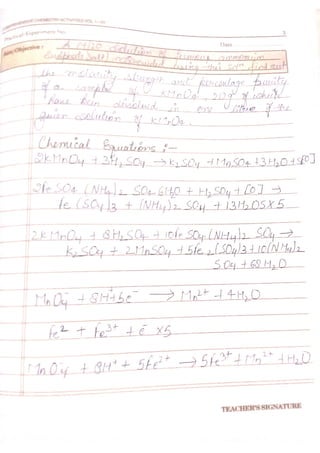 COMPREHENSIVE CHEMISTRY ACTIVITIES VOL. I - XII
Practical / Experiment No. 3
Date
Aim/Objective : A M/20 solution of ferrous ammonium
Sulphate Salt using this solution find out
the molarity, strength and percentage purity
of a sample of KMnO4, of which
have been dissolved in one litre of the
given solution of KMnO4.
Chemical Equations :-
2KMnO4 + 3H2SO4 → K2SO4 + MnSO4 + 3H2O + 5[O]
2FeSO4 (NH4)2 SO4 6H2O + H2SO4 + [O] →
Fe (SO4)3 + (NH4)2 SO4 + 13H2O5 X 5
2KMnO4 + 8H2SO4 + 10Fe SO4 (NH4)2 SO4 →
K2SO4 + 2MnSO4 + 5Fe2 (SO4)3 + 10(NH4)2
SO4 + 68H2O
MnO4⁻ + 8H⁺ + 5e⁻ → Mn²⁺ + 4H2O
Fe² + Fe³⁺ + e⁻ x5
MnO4⁻ + 8H⁺ + 5Fe²⁺ → 5Fe³⁺ + Mn²⁺ + H2O
TEACHER'S SIGNATURE